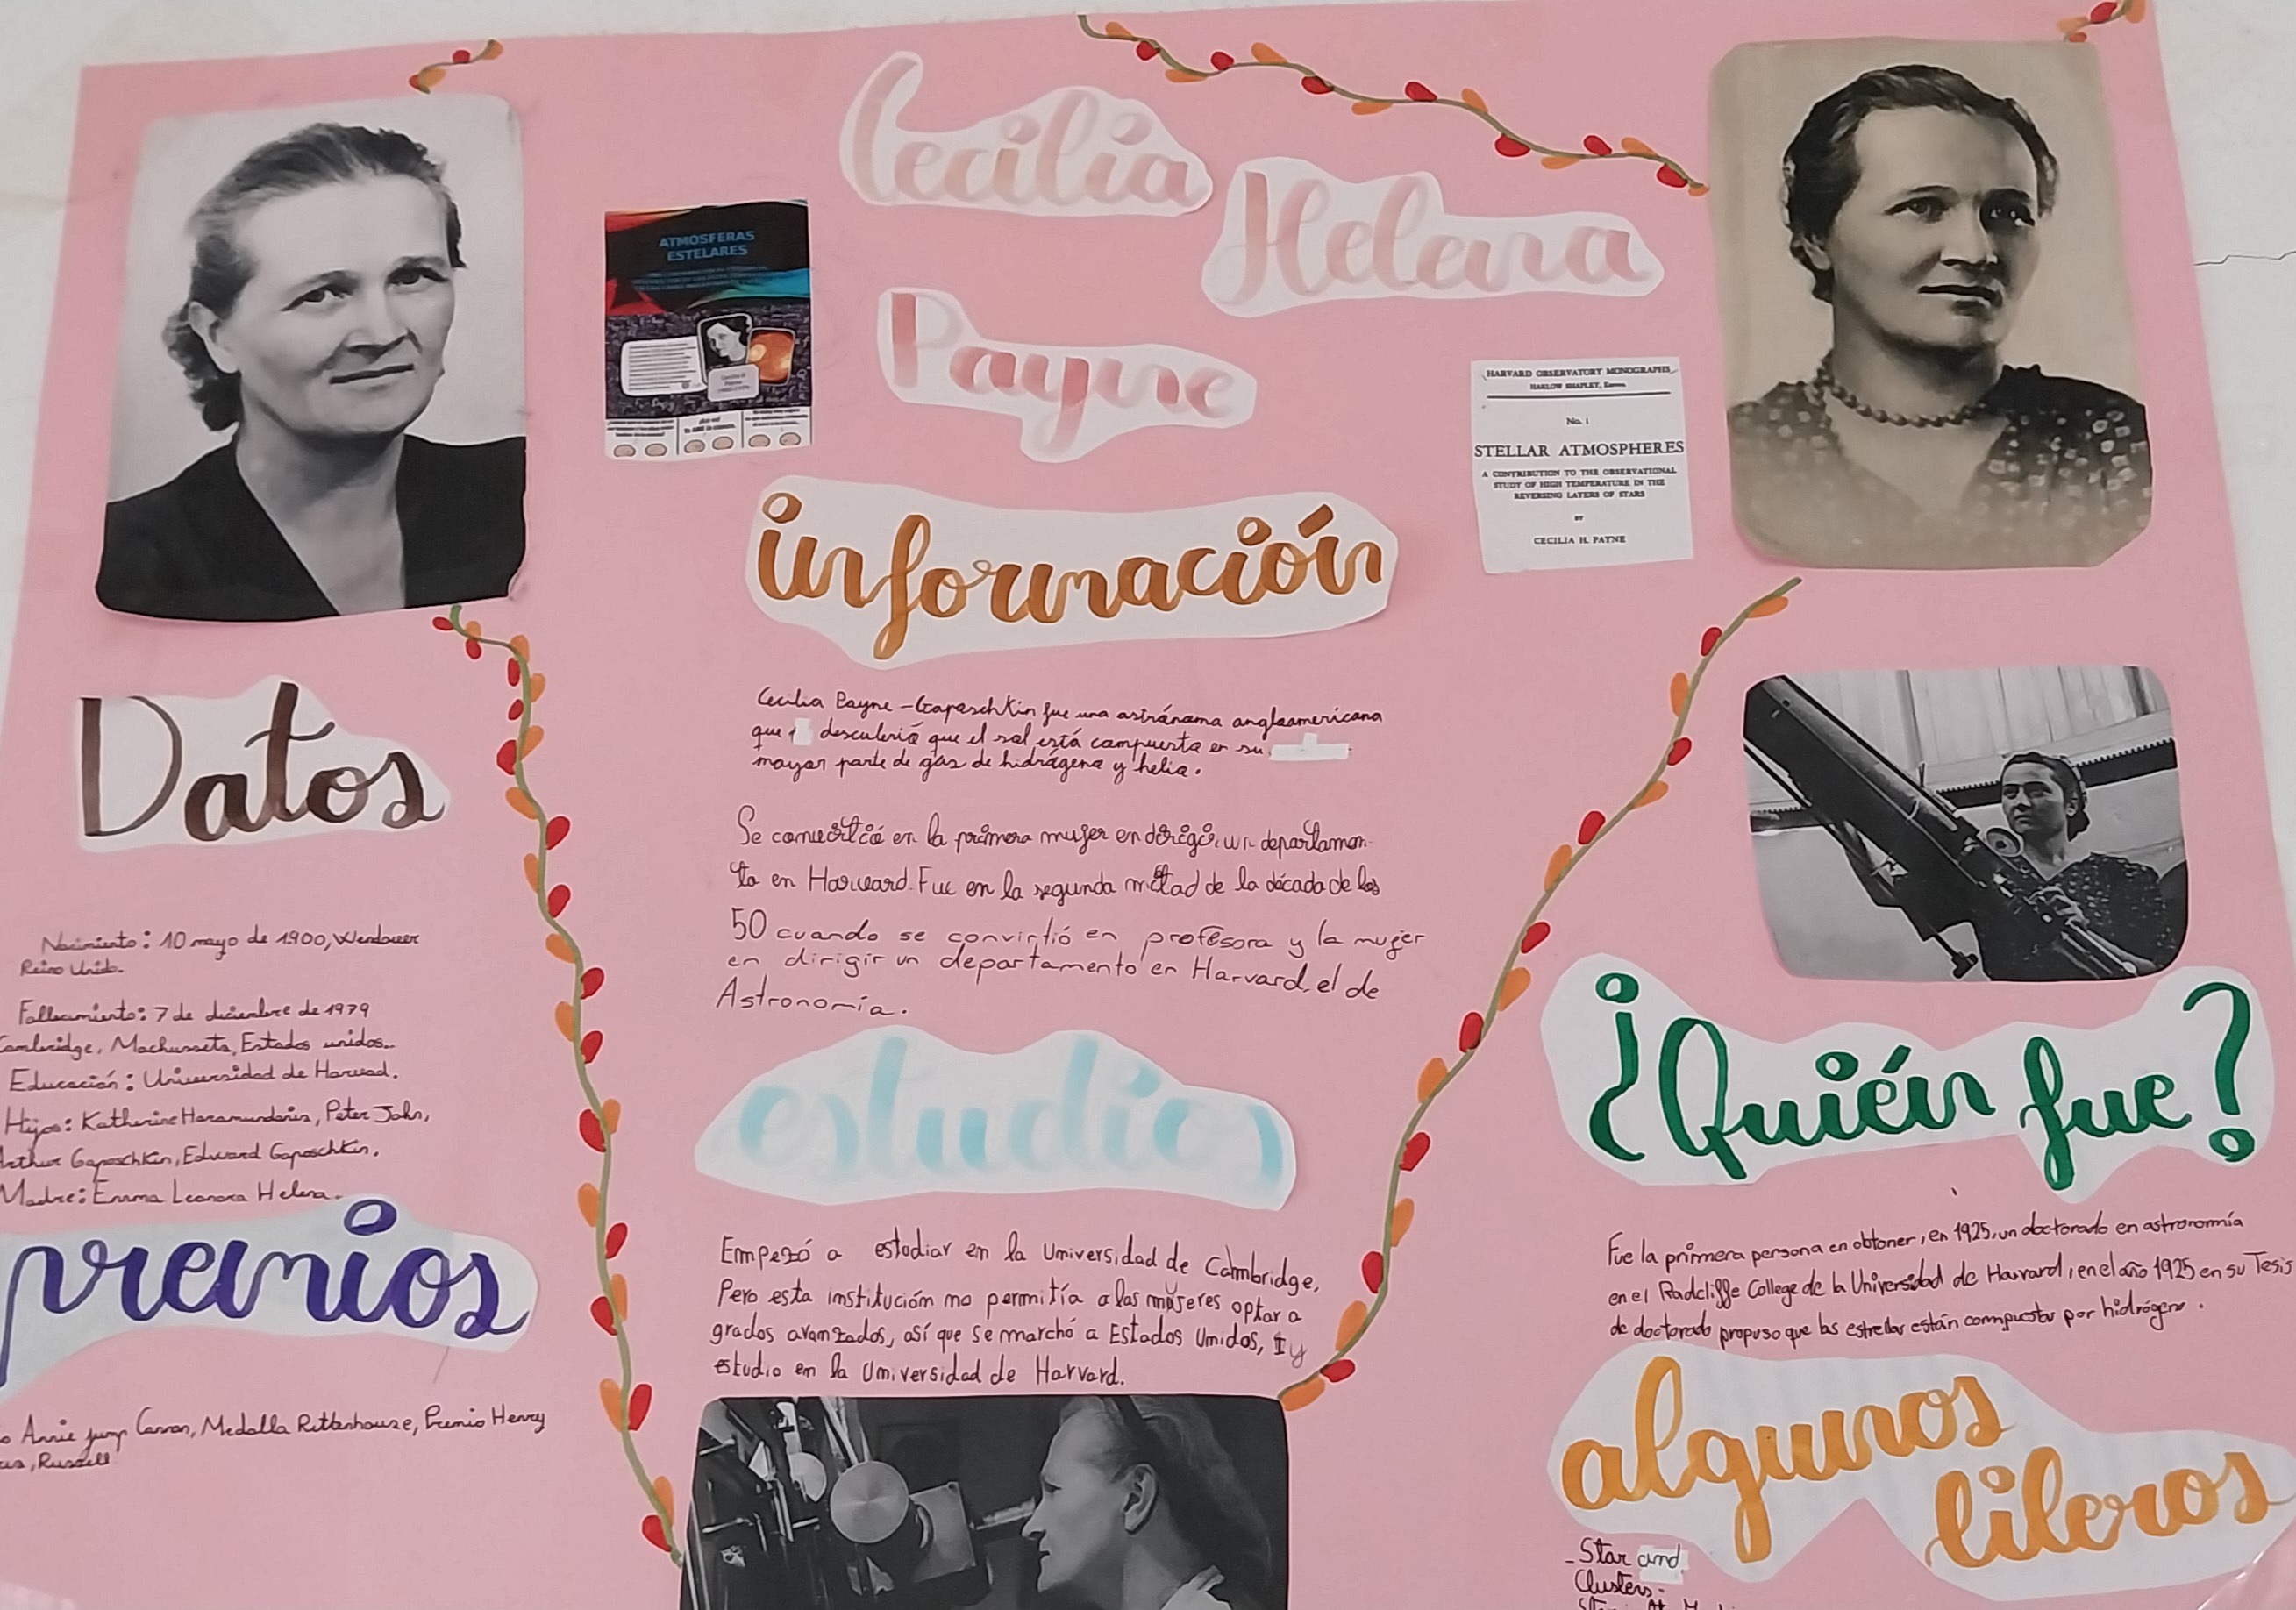 Cecilia
Helena
Payne
ATMOSFERAS
ESTELARES
HARVARD OBSERVATORY MONOGRAPHS
HARLOW SHAPLEY, Editor
No. 1
STELLAR ATMOSPHERES
A CONTRIBUTION TO THE OBSERVATIONAL
STUDY OF HIGH TEMPERATURE IN THE
REVERSING LAYERS OF STARS
BY
CECILIA H. PAYNE
información
Cecilia Payne-Gaposchkin fue una astrónoma angloamericana
que descubrió que el sol está compuesta en su
mayor parte de gas de hidrógeno y helio.
Se convirtió en la primera mujer en dirigir un departamen-
to en Harvard. Fue en la segunda mitad de la década de los
50 cuando se convirtió en profesora y la mujer
en dirigir un departamento en Harvard, el de
Astronomía.
estudios
Empezó a estudiar en la Universidad de Cambridge,
Pero esta institución no permitía a las mujeres optar a
grados avanzados, así que se marchó a Estados Unidos, y
estudio en la Universidad de Harvard.
Datos
Nacimiento: 10 mayo de 1900, Wendover
Reino Unido.
Fallecimiento: 7 de diciembre de 1979
Cambridge, Machussets, Estados unidos.
Educación: Universidad de Harvad.
Hijos: Katherine Haramundanis, Peter John,
Arthur Gaposchkin, Edward Gaposchkin.
Madre: Emma Leonora Helena.
premios
Annie jump Cannon, Medalla Rittenhouse, Premio Henry
Russell
¿Quién fue?
Fue la primera persona en obtener, en 1925, un doctorado en astronomía
en el Radcliffe College de la Universidad de Harvard, en el año 1925 en su Tesis
de doctorado propuso que las estrellas están compuestas por hidrógeno.
algunos
libros
- Star and
Clusters.